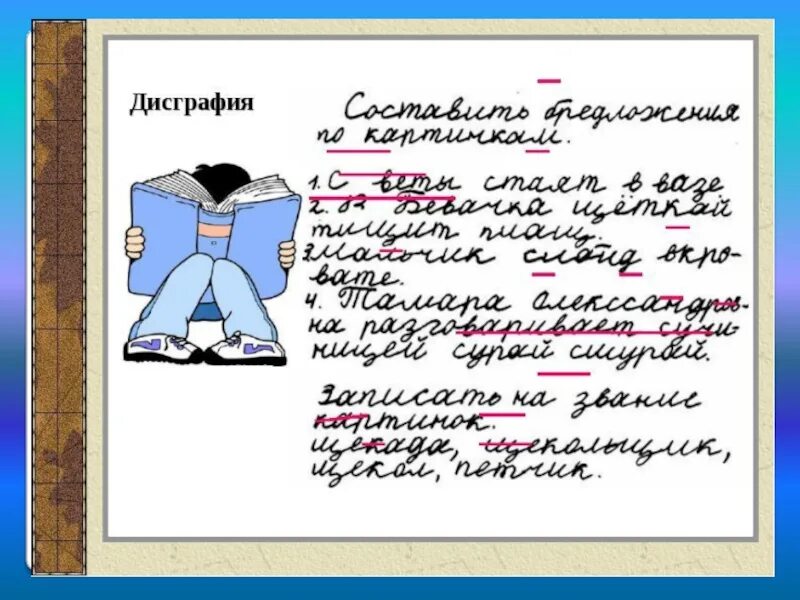 Дисграфия
Составить бредложения
по картичкам.
1. С веты стаят в вазе
2. Бевачка щёткай
тищит плащ.
3. Мальчик слайд вкро-
вате.
4. Тамара Олекссандров-
на разговаривает сучи-
ницей сурай шурай.
Записать на звание
картинок.
щекада, щекольщик,
щекол, петчик.